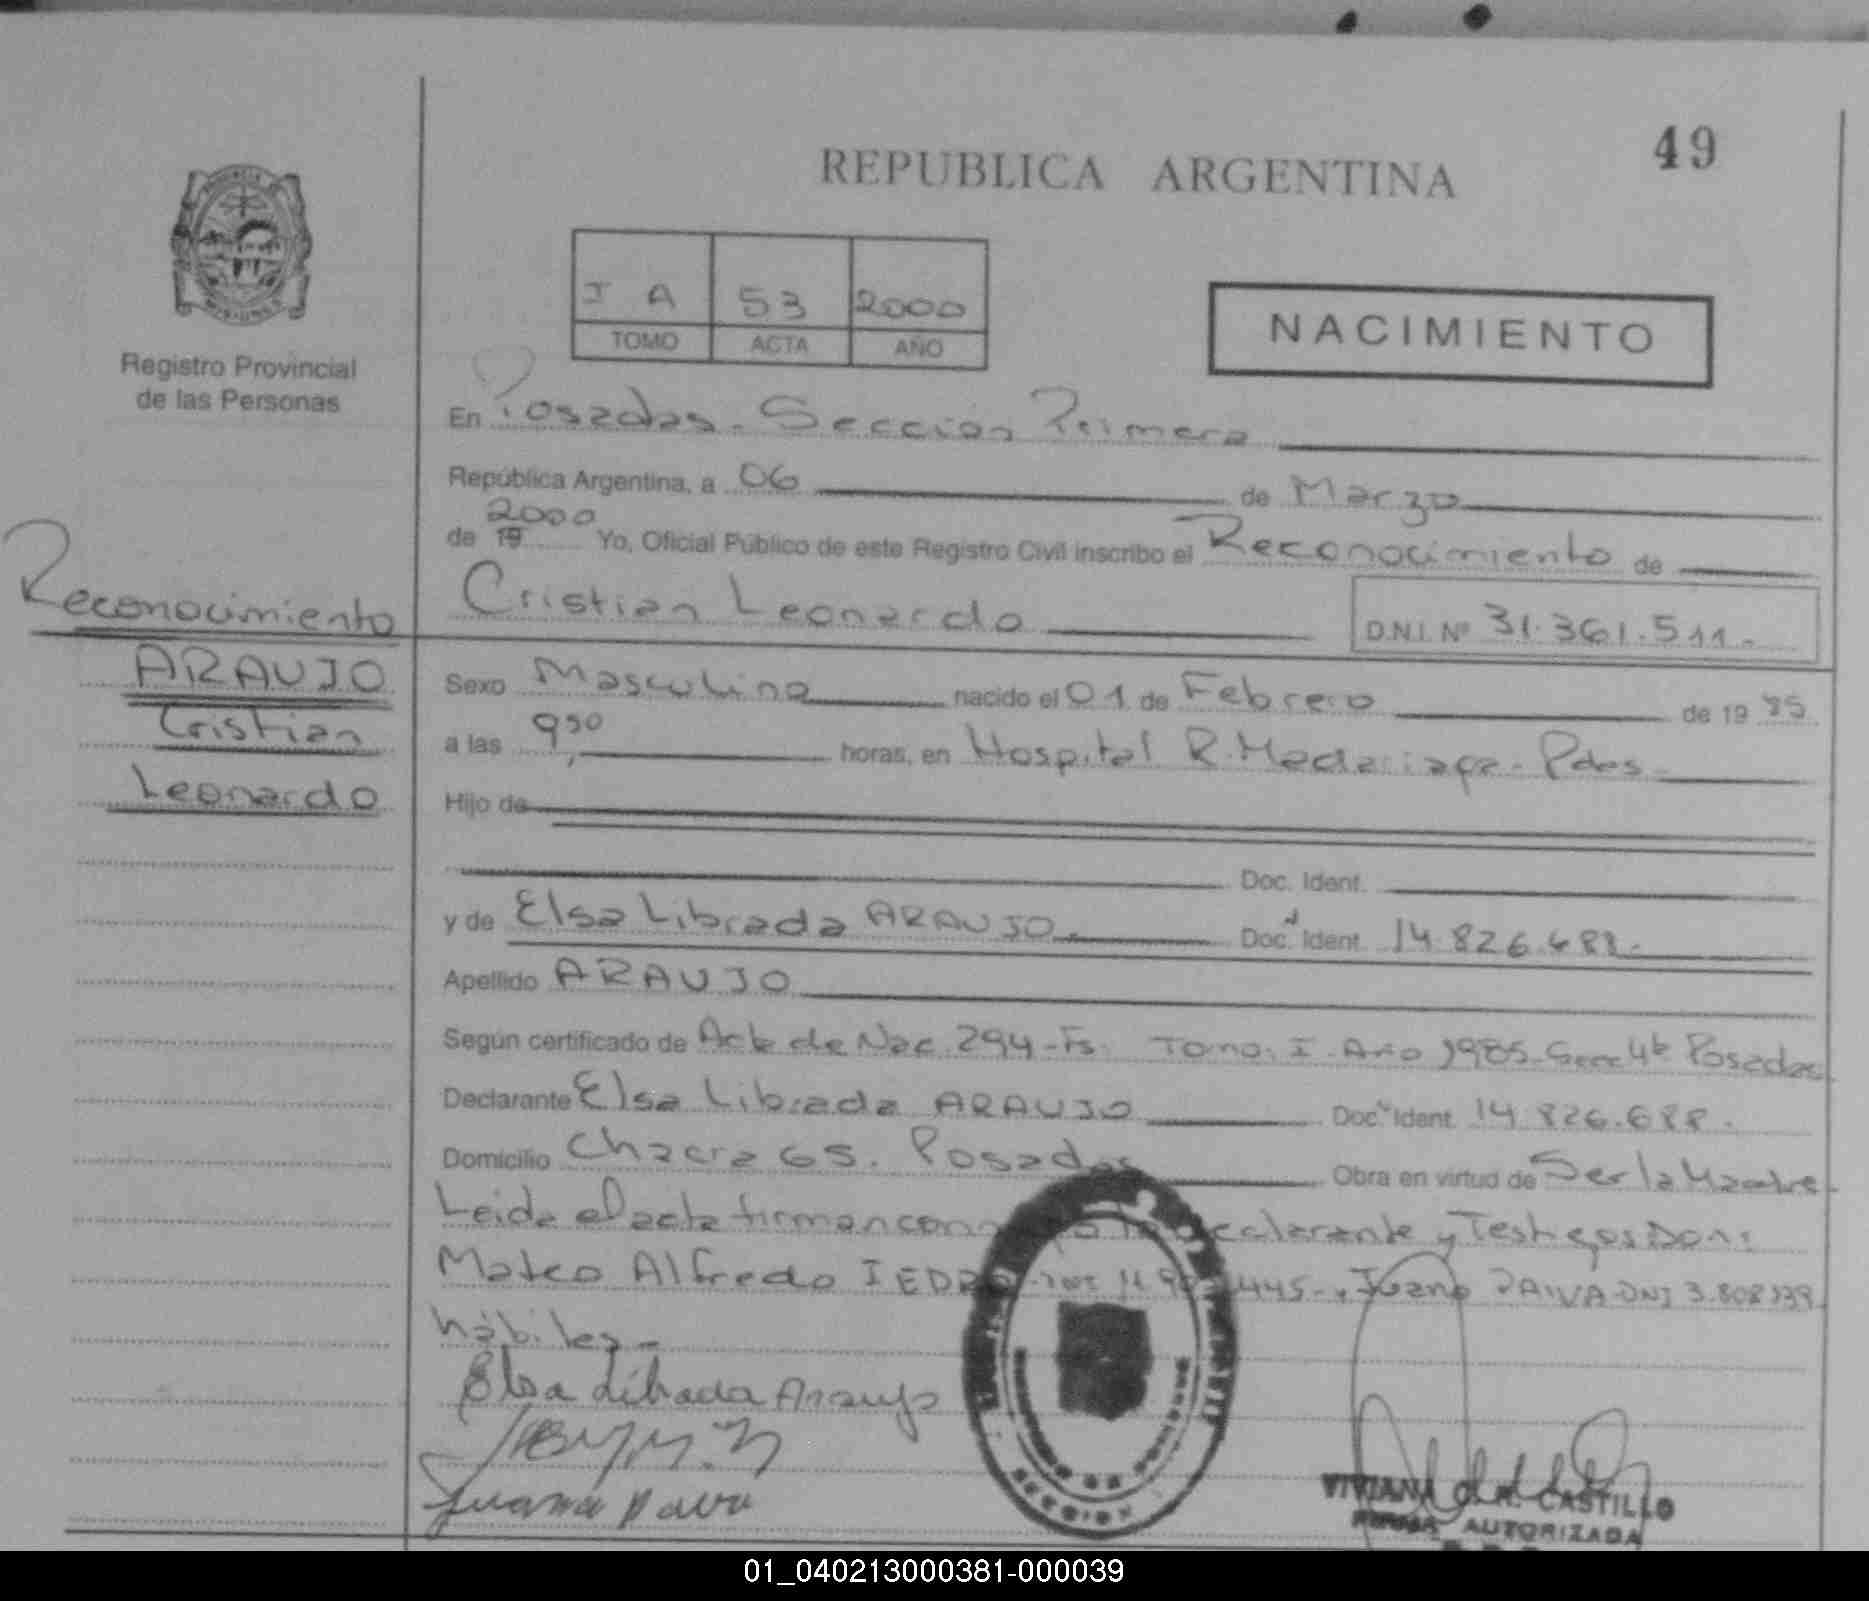 49
REPUBLICA ARGENTINA
I A 53 2000
TOMO ACTA AÑO
NACIMIENTO
Registro Provincial
de las Personas
En Posadas - Sección Primera
República Argentina, a 06 de Marzo
2000
de 19 Yo, Oficial Público de este Registro Civil inscribo el Reconocimiento de
Cristian Leonardo D.N.I. Nº 31.361.511.-
Reconocimiento
ARAUJO
Cristian
Leonardo
Sexo Masculino nacido el 01 de Febrero de 19 85
a las 9,30 horas, en Hospital R. Madariaga - Pdas -
Hijo de
Doc. Ident.
y de Elsa Librada ARAUJO.- Doc. Ident. 14.826.688.-
Apellido ARAUJO
Según certificado de Acta de Nac. 294 - Fs. Tomo. I. Año 1985. Secc 4ta Posadas.
Declarante Elsa Librada ARAUJO Doc. Ident. 14.826.688.-
Domicilio Chacra 65. Posadas Obra en virtud de Ser la Madre.
Leida el acta firman la declarante y Testigos Don:
Mateo Alfredo Juana PAIVA - DNI 3.808.139
hábiles.-
Elsa Librada Araujo
Juana Paiva
VIVIANA CASTILLO
FIRMA AUTORIZADA
01_040213000381-000039